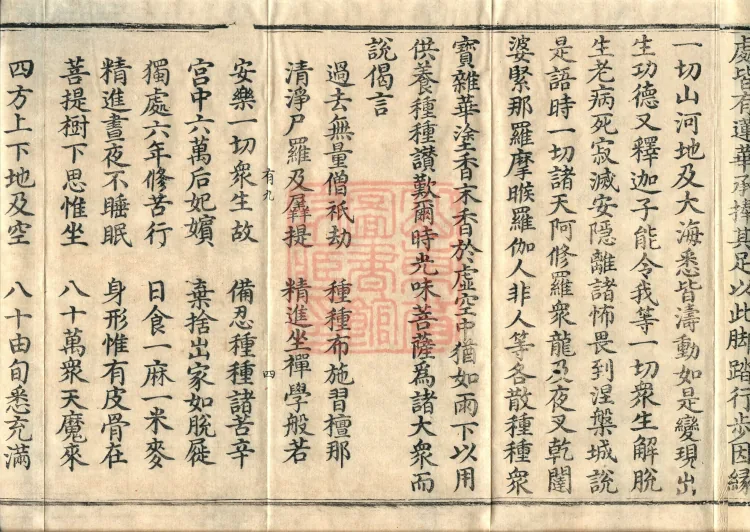 處皆有蓮華承接其足以此脚踏行步因緣
一切山河地及大海悉皆濤動如是變現出
生功德又釋迦子能令我等一切衆生解脫
生老病死寂滅安隱離諸怖畏到涅槃城說
是語時一切諸天阿修羅衆龍及夜叉乾闥
婆緊那羅摩睺羅伽人非人等各散種種衆
寶雜華塗香末香於虛空中猶如雨下以用
供養種種讚歎爾時光味菩薩爲諸大衆而
說偈言
過去無量僧祇劫 種種布施習檀那
清淨尸羅及羼提 精進坐禪學般若
有九 四
安樂一切衆生故 備忍種種諸苦辛
宮中六萬后妃嬪 棄捨出家如脫屣
獨處六年修苦行 日食一麻一米麥
精進晝夜不睡眠 身形惟有皮骨在
菩提樹下思惟坐 八十萬衆天魔來
四方上下地及空 八十由旬悉充滿